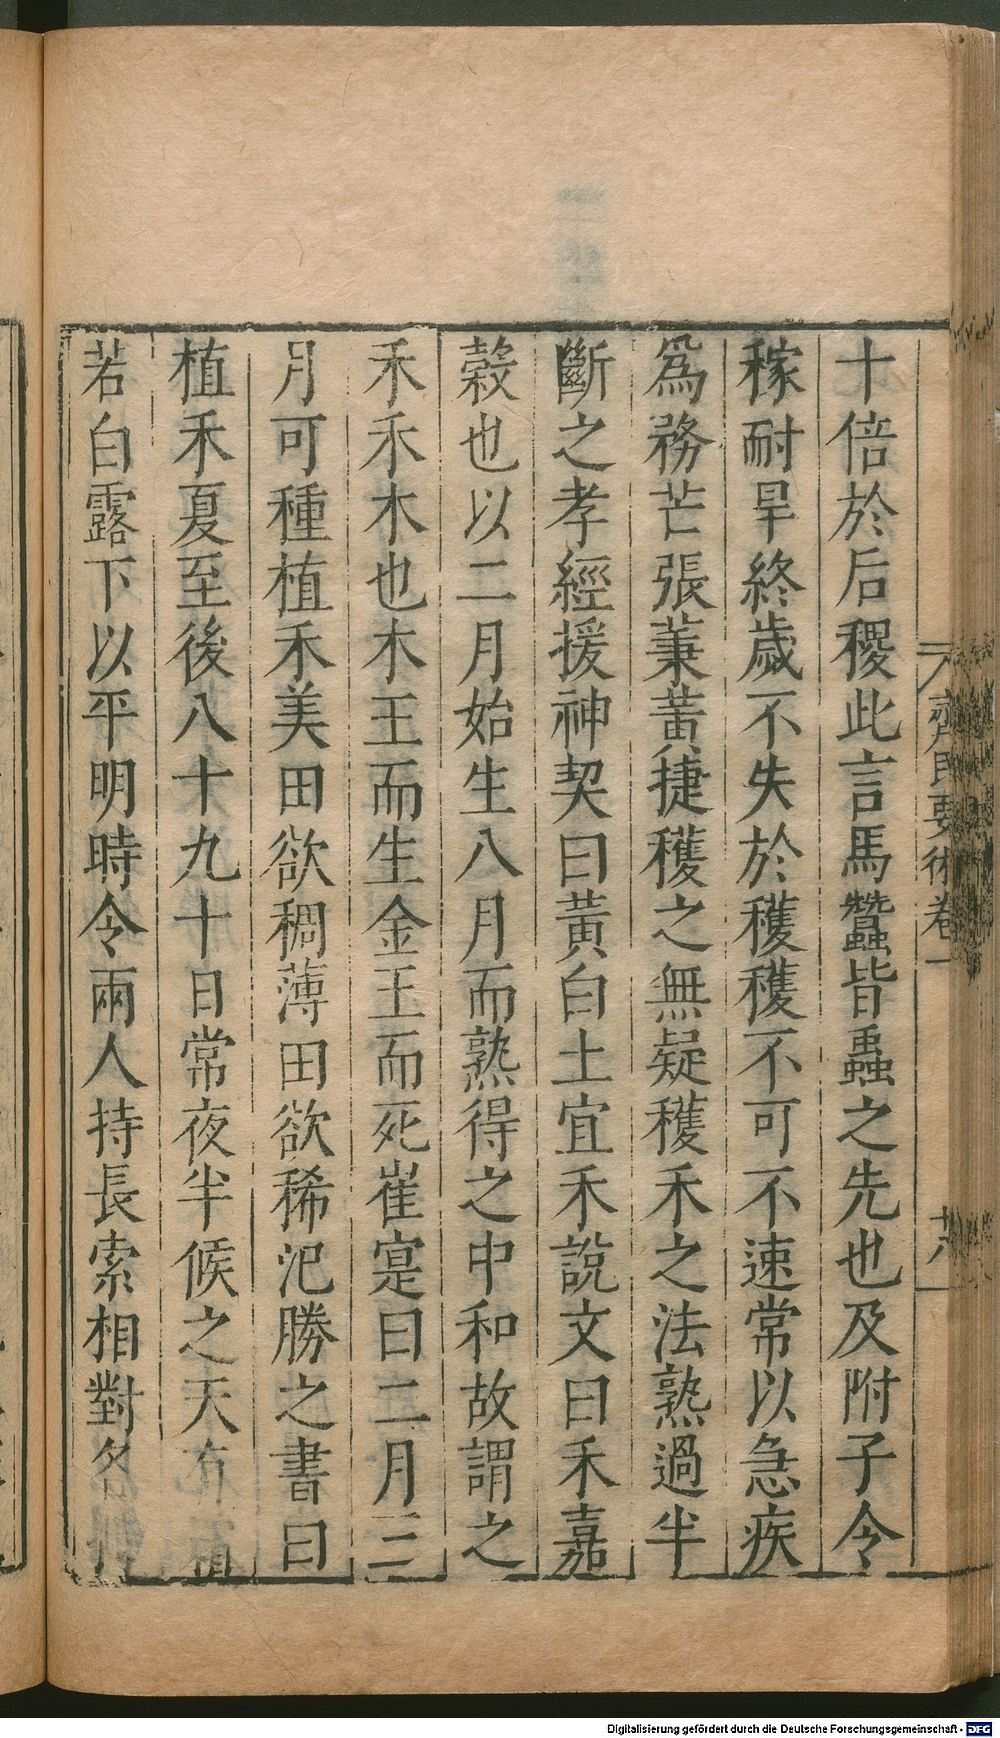 十倍於后稷此言馬蠶皆蟲之先也及附子令
稼耐旱終歲不失於穫穫不可不速常以急疾
爲務芒張葉黃捷穫之無疑穫禾之法熟過半
斷之孝經援神契曰黃白土宜禾說文曰禾嘉
穀也以二月始生八月而熟得之中和故謂之
禾禾木也木王而生金王而死崔寔曰二月三
月可種植禾美田欲稠薄田欲稀汜勝之書曰
植禾夏至後八十九十日常夜半候之天有
若白露下以平明時令兩人持長索相對各
齊民要術卷一
Digitalisierung gefördert durch die Deutsche Forschungsgemeinschaft - DFG